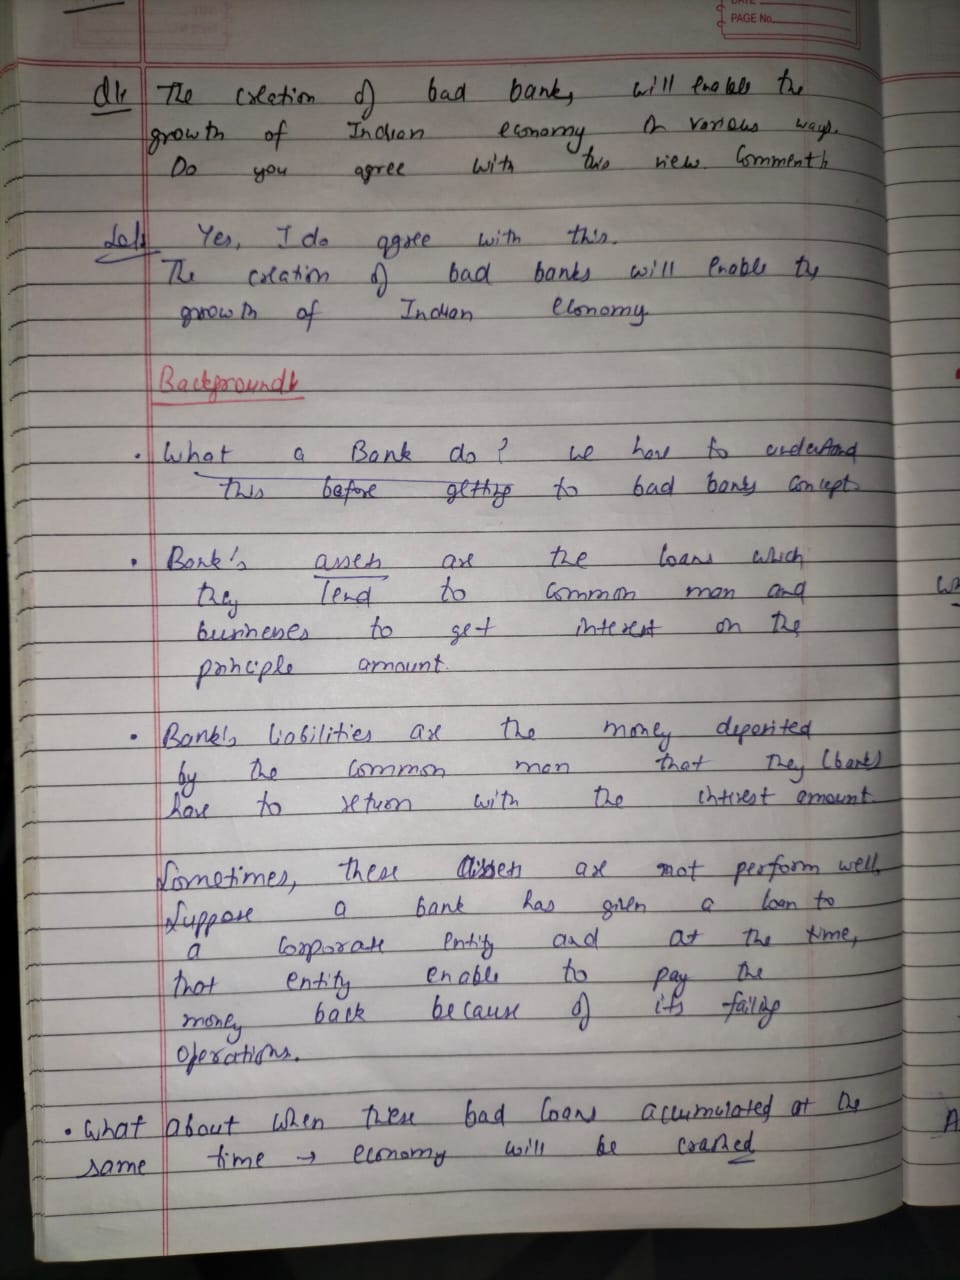 DATE
PAGE No.
Q1. The creation of bad banks, will enable the
growth of Indian economy in various ways.
Do you agree with this view. Comment.
Sol. Yes, I do agree with this.
The creation of bad banks will enable the
growth of Indian economy.
Background
• What a Bank do? we have to understand
this before getting to bad banks concept.
• Bank's assets are the loans which
they lend to common man and
businesses to get interest on the
principle amount.
• Bank's liabilities are the money deposited
by the common man that they (bank)
have to return with the interest amount.
Sometimes, these assets are not perform well,
Suppose a bank has given a loan to
a corporate entity and at the time,
that entity enable to pay the
money back because of its failing
operations.
• What about when these bad loans accumulated at the
same time → economy will be crashed